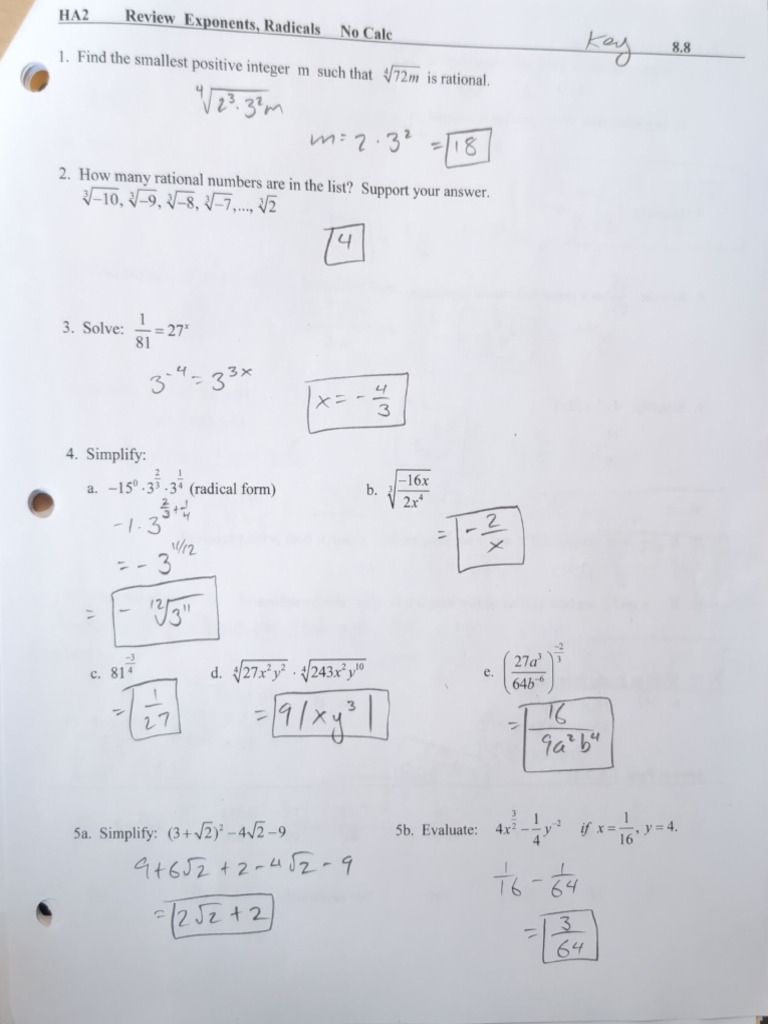 HA2 Review Exponents, Radicals No Calc Key 8.8
1. Find the smallest positive integer m such that ∜72m is rational.
∜2³·3²m
m = 2 · 3² = 18
2. How many rational numbers are in the list? Support your answer.
∛-10, ∛-9, ∛-8, ∛-7,..., ∛2
4
3. Solve: 1/81 = 27ˣ
3⁻⁴ = 3³ˣ
x = - 4/3
4. Simplify:
a. -15⁰ · 3^(2/3) · 3^(1/4) (radical form) b. ∛(-16x/2x⁴)
-1 · 3^(2/3 + 1/4)
= - 3^(11/12)
= - ¹²√3¹¹
= - 2/x
c. 81^(-3/4) d. ∜27x²y² · ∜243x²y¹⁰ e. (27a³/64b⁻⁶)^(-2/3)
= 1/27
= 9|xy³|
= 16/9a²b⁴
5a. Simplify: (3+√2)² - 4√2 - 9 5b. Evaluate: 4x^(3/2) - 1/4 y⁻² if x = 1/16, y = 4.
9 + 6√2 + 2 - 4√2 - 9
= 2√2 + 2
1/16 - 1/64
= 3/64